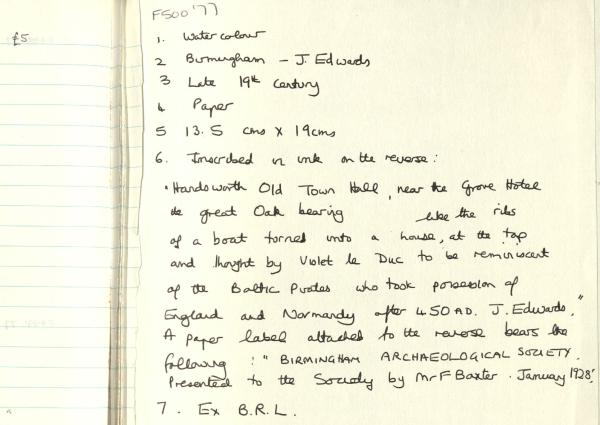 F500'77
£5
1. Watercolour
2 Birmingham - J. Edwards
3 Late 19th Century
4 Paper
5 13.5 cms X 19cms
6. Inscribed in ink on the reverse :
'Handsworth Old Town Hall, near the Grove Hotel
the great Oak bearing like the ribs
of a boat turned into a house, at the top
and thought by Violet le Duc to be reminiscent
of the Baltic Pirates who took possession of
England and Normandy after 450 AD. J. Edwards."
A paper label attached to the reverse bears the
following : "BIRMINGHAM ARCHAEOLOGICAL SOCIETY.
Presented to the Society by Mr F Baxter. January 1928'.
7. Ex B.R.L.